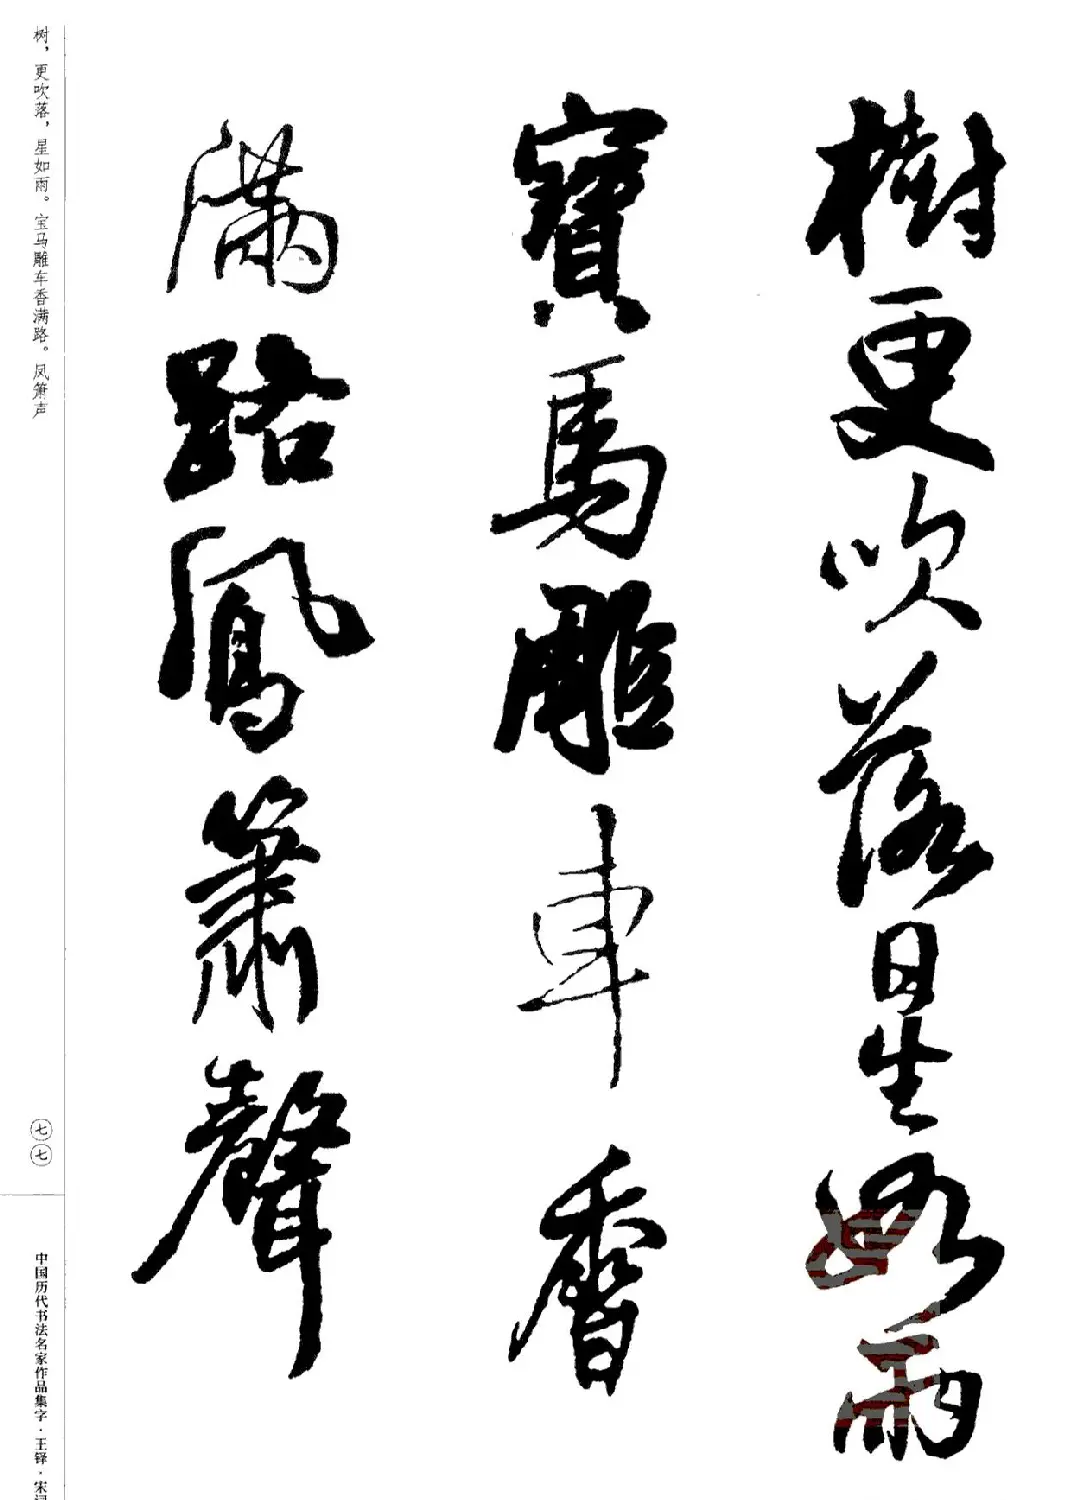 樹更吹落星如雨
寶馬雕車香
滿路鳳簫聲
树，更吹落，星如雨。宝马雕车香满路。凤箫声
七七
中国历代书法名家作品集字·王铎·宋词